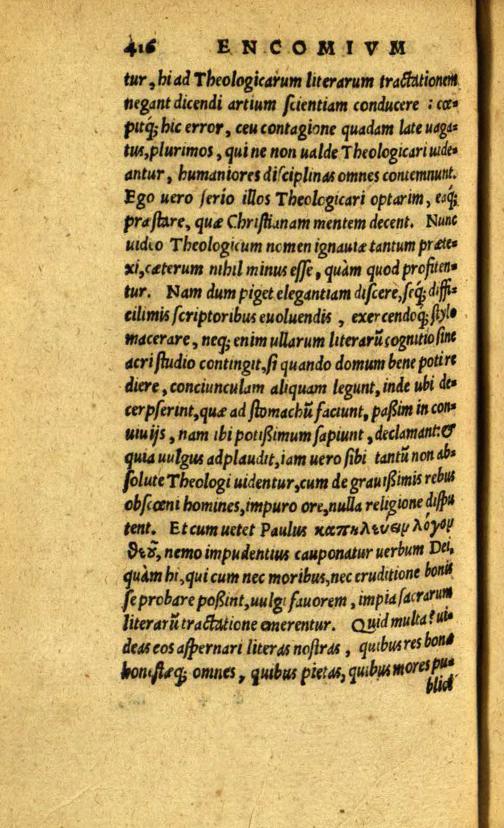 416 ENCOMIVM
tur, hi ad Theologicarum literarum tractationem
negant dicendi artium scientiam conducere : cœ-
pitq́; hic error, ceu contagione quadam late uaga-
tus, plurimos, qui ne non ualde Theologicari uide-
antur, humaniores disciplinas omnes contemnunt.
Ego uero serio illos Theologicari optarim, eaq́;
præstare, quæ Christianam mentem decent. Nunc
uideo Theologicum nomen ignauiæ tantum præte-
xi, cæterum nihil minus esse, quàm quod profiten-
tur. Nam dum piget elegantiam discere, seq́; diffi-
cilimis scriptoribus euoluendis, exercendoq́; stylo
macerare, neq́; enim ullarum literarū cognitio sine
acri studio contingit, si quando domum bene poti re
diere, conciunculam aliquam legunt, inde ubi de-
cerpserint, quæ ad stomachū faciunt, paßim in con-
uiuijs, nam ibi potißimum sapiunt, declamant: &
quia uulgus adplaudit, iam uero sibi tantū non ab-
solute Theologi uidentur, cum de grauißimis rebus
obscœni homines, impuro ore, nulla religione dispu
tent. Et cum uetet Paulus καπηλεύειν λόγον
θεοῦ, nemo impudentius cauponatur uerbum Dei,
quàm hi, qui cum nec moribus, nec eruditione bonis
se probare poßint, uulgi fauorem, impia sacrarum
literarū tractatione emerentur. Quid multa? ui-
deas eos aspernari literas nostras, quibus res bonæ
honestæq́; omnes, quibus pietas, quibus mores pu-
blici